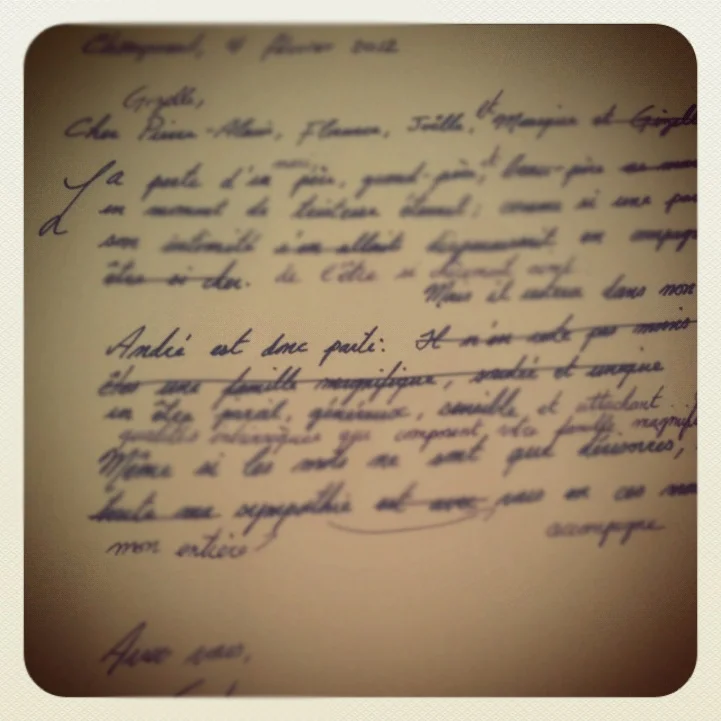 4 février 2012
Gizelle,
Cher Pierre-Alain, Florence, Joëlle, et Monique et Gizell
La perte d'un père, grand-père, et beau-père
un moment de tristesse éternel; comme si une par
son intimité s'en allait en compag
être si cher. de l'être si
Mais il restera dans nos
André est donc parti. Il n'en reste pas moins
êtes une famille magnifique, soudée et unique
un être pareil, généreux, sensible et attachant...
qualités intrinsèques qui composent votre famille magnif
Même si les mots ne sont que dérisoires,
toute ma sympathie est avec vous en ces mo
accompagne
mon entière
Avec vous,